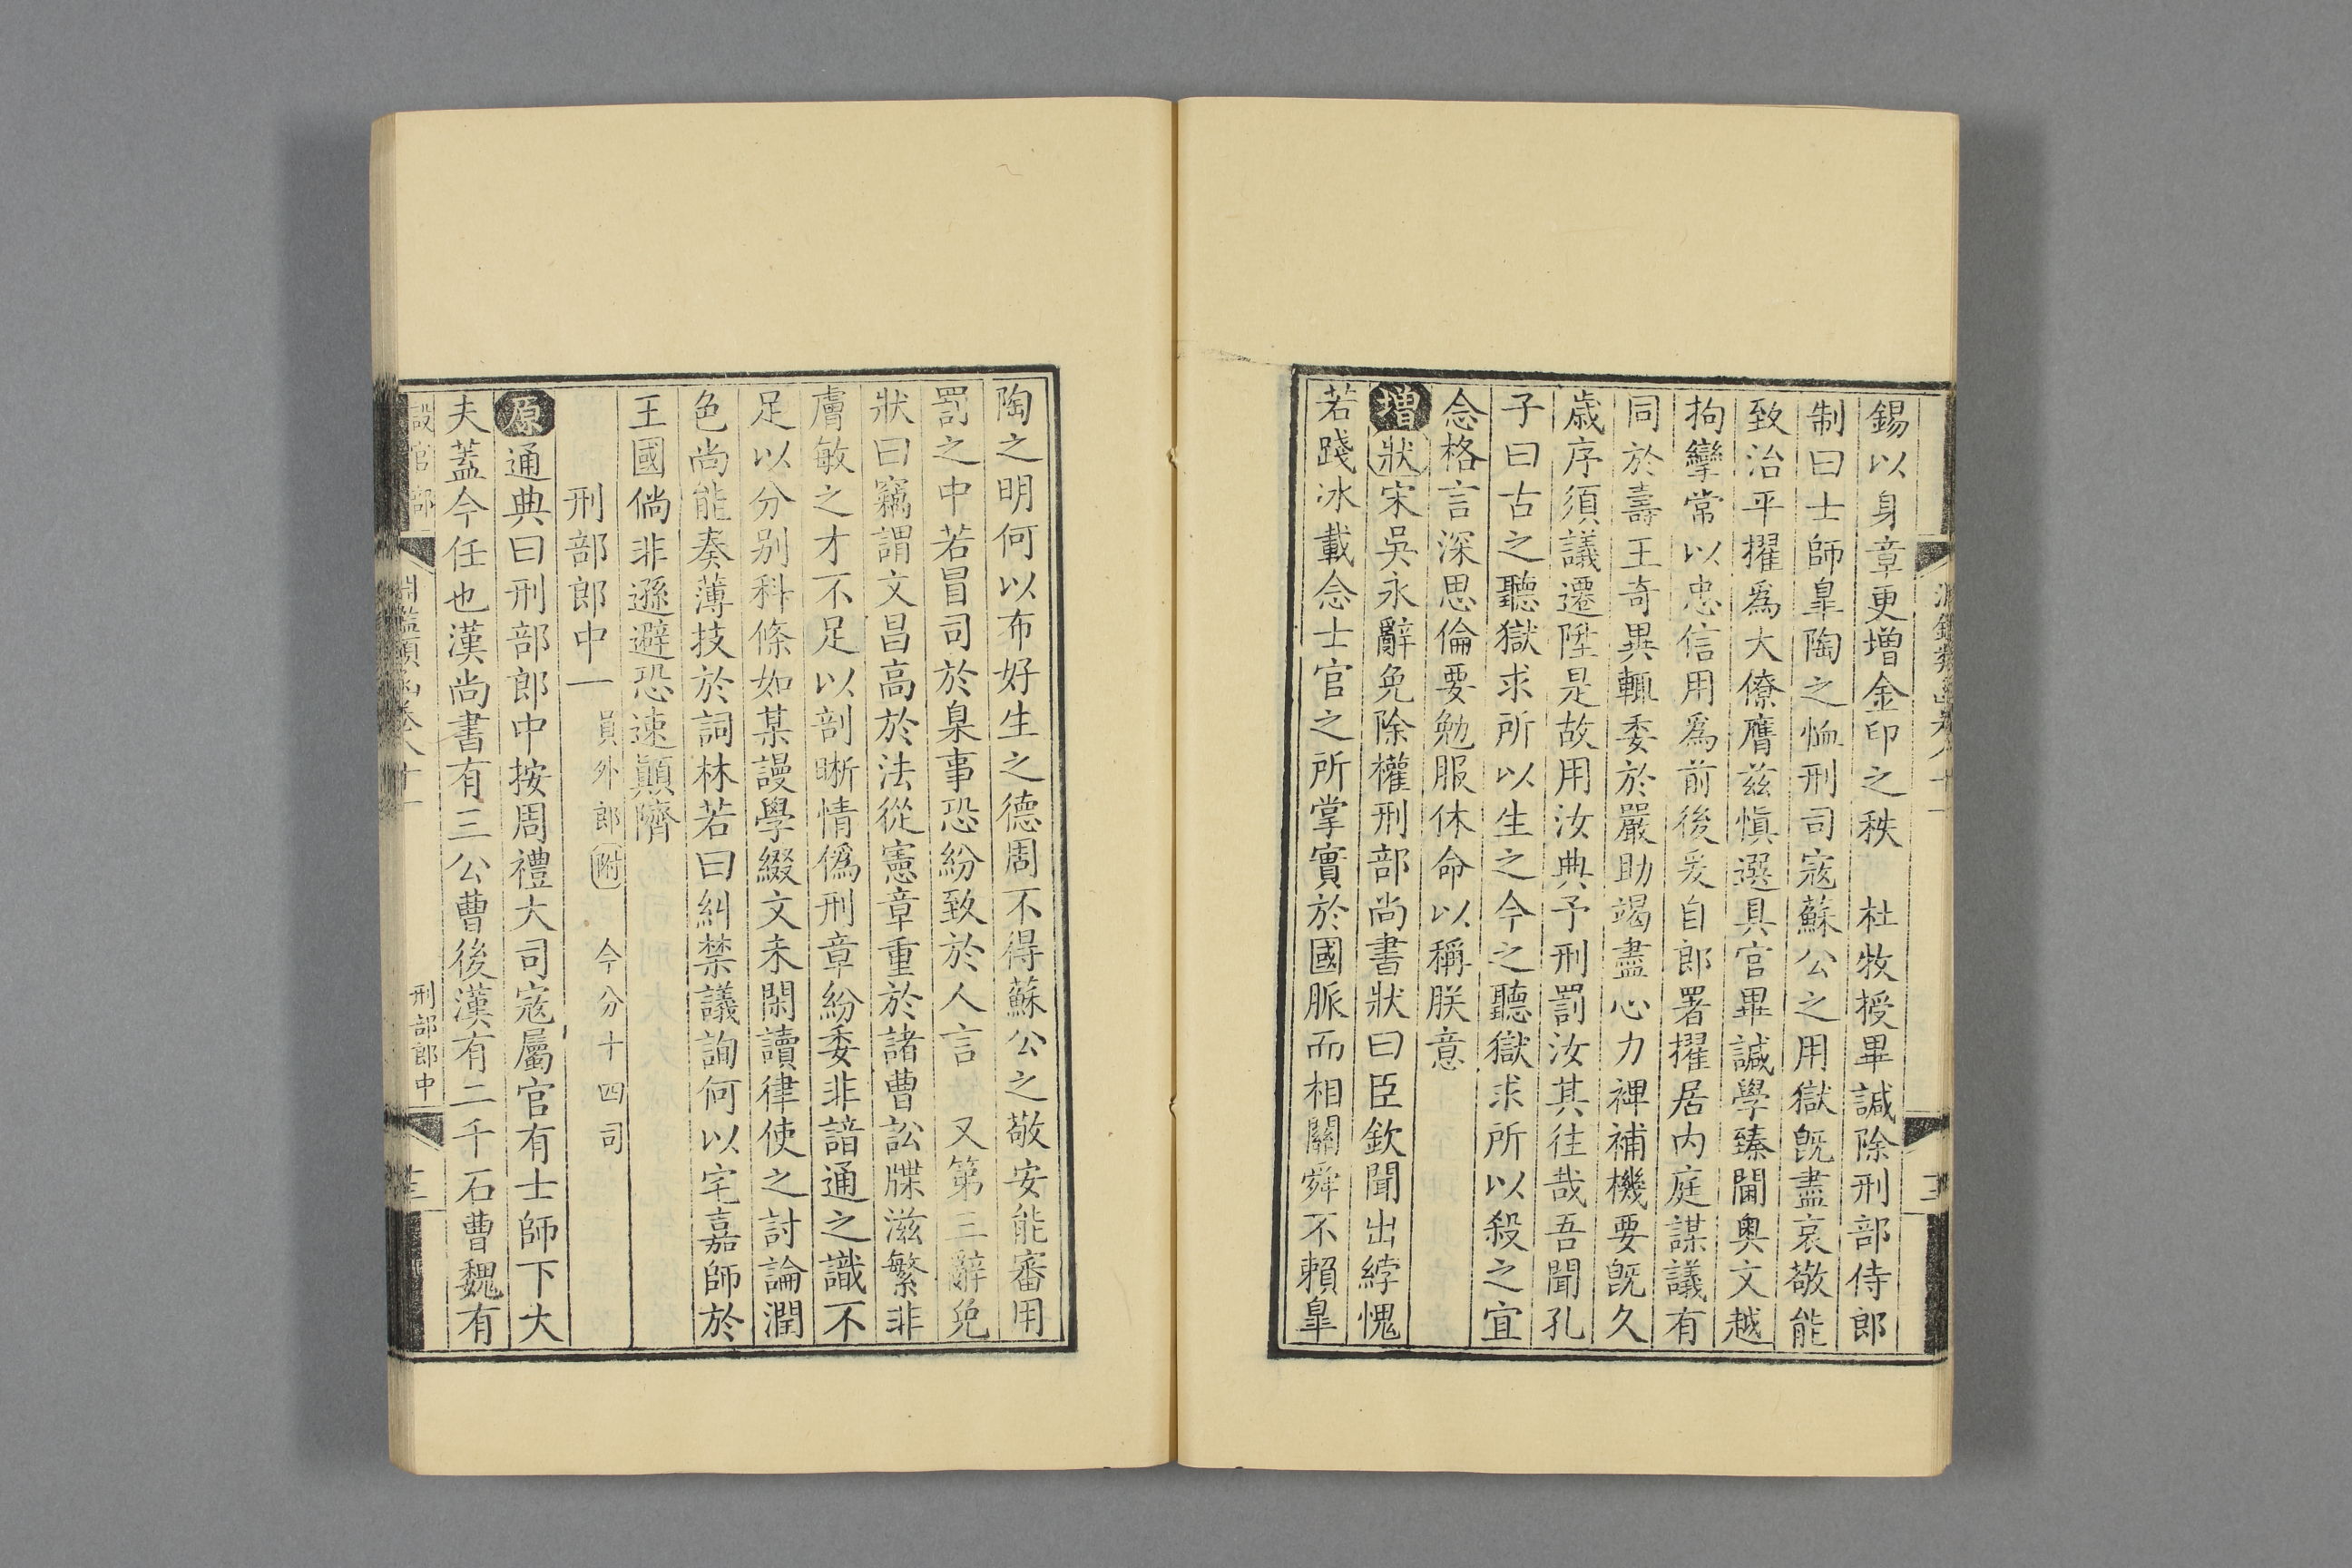 錫以身章更增金印之秩　杜牧授畢諴除刑部侍郎
制曰士師臯陶之恤刑司寇蘇公之用獄旣盡哀敬能
致治平擢爲大僚膺兹愼選具官畢諴學臻閫奧文越
拘攣常以忠信用爲前後爰自郎署擢居内庭謀議有
同於壽王奇異輒委於嚴助竭盡心力裨補機要旣久
歲序須議遷陞是故用汝典予刑罰汝其往哉吾聞孔
子曰古之聽獄求所以生之今之聽獄求所以殺之宜
念格言深思倫要勉服休命以稱朕意
增狀宋吳永辭免除權刑部尚書狀曰臣欽聞出綍愧
若踐冰載念士官之所掌實於國脈而相關舜不賴臯
陶之明何以布好生之德周不得蘇公之敬安能審用
罰之中若冒司於臬事恐紛致於人言　又第三辭免
狀曰竊謂文昌高於法從憲章重於諸曹訟牒滋繁非
膚敏之才不足以剖晰情僞刑章紛委非諳通之識不
足以分别科條如某謾學綴文未閑讀律使之討論潤
色尚能奏薄技於詞林若曰糾禁議詢何以宅嘉師於
王國倘非遜避恐速顚隮
刑部郎中一員外郎附　今分十四司
原通典曰刑部郎中按周禮大司寇屬官有士師下大
夫蓋今任也漢尚書有三公曹後漢有二千石曹魏有
設官部　淵鑑類函卷八十一　刑部郎中